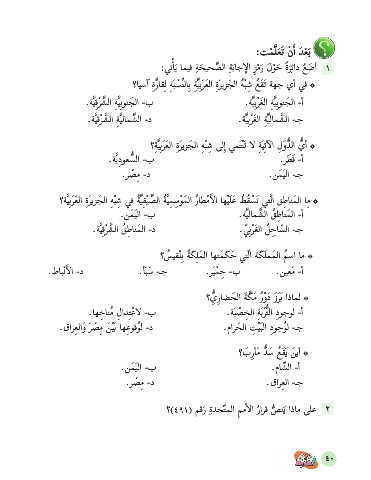 بَعْدَ أَنْ تَعَلَّمْت:
١ أَضَعُ دائِرَةً حَوْلَ رَمْزِ الإجابَةِ الصَّحيحَةِ فيما يَأْتي:
* في أي جهة تَقَعُ شِبْهُ الجَزيرَةِ العَرَبِيَّةِ بِالنِّسْبَةِ لِقارَّةِ آسيا؟
أ- الجَنوبِيَّةِ الغَرْبِيَّةِ. ب- الجَنوبِيَّةِ الشَّرْقِيَّةِ.
جـ- الشَّمالِيَّةِ الغَرْبِيَّةِ. د- الشَّمالِيَّةِ الشَّرْقِيَّةِ.
* أَيُّ الدُّوَلِ الآتِيَةِ لا تَنْتَمي إلى شِبْهِ الجَزيرَةِ العَرَبِيَّةِ؟
أ- قَطَر. ب- السُّعودِيَّة.
جـ- اليَمَن. د- مِصْر.
* ما المَناطِقُ الَّتي تَسْقُطُ عَلَيْها الأَمْطارُ المَوْسِمِيَّةُ الصَّيْفِيَّةُ في شِبْهِ الجَزيرَةِ العَرَبِيَّةِ؟
أ- المَناطِقُ الشَّمالِيَّة. ب- اليَمَن.
جـ- السّاحِلُ الغَرْبِيّ. د- المَناطِقُ الشَّرْقِيَّة.
* ما اسمُ المَملَكَة الَّتي حَكَمَتها المَلكةُ بِلْقيسُ؟
أ- مَعين. ب- حِمْيَر. جـ- سَبَأ. د- الأَنْباط.
* لماذا بَرَزَ دَوْرُ مَكَّةَ الحَضارِيُّ؟
أ- لوجودِ التُّرْبَةِ الخِصْبَة. ب- لاعْتِدالِ مُناخِها.
جـ- لوُجودِ البَيْتِ الحَرام. د- لِوُقوعِها بَيْنَ مِصْرَ والعِراق.
* أَينَ يَقَعُ سَدُّ مَأرِبَ؟
أ- الشّام. ب- اليَمَن.
جـ- العِراق. د- مِصْر.
٢ على ماذا يَنصُّ قرارُ الأُممِ المتَّحدةِ رَقم (٤٩١)؟
٤٠